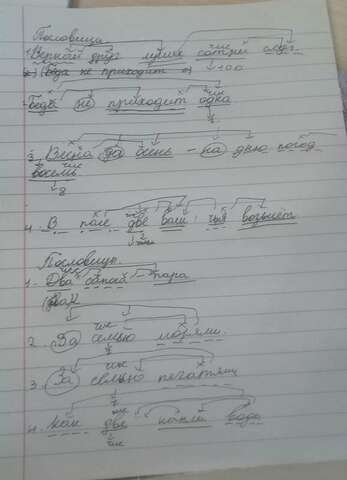 Пословица
1. Верный друг лучше сотни слуг.
2) (Беда не приходит о) ↓ 100
Беда не приходит одна
чис
1
3. Весна да осень - на дню погод
восемь
8
4. В поле две воли: чья возьмёт
2
Пословицы.
1. Два сапога - пара
2. За семью морями.
чис
7
3. За семью печатями
чис
7
4. Как две капли воды
чис